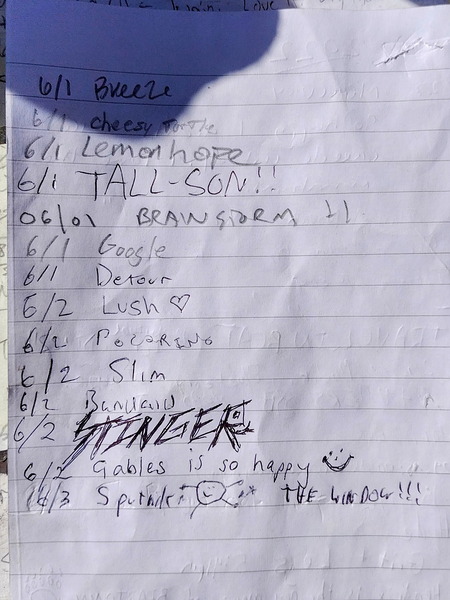 6/1 Breeze
6/1 cheesy Turtle
6/1 Lemonhope
6/1 TALL-SON!!
06/01 BRAINSTORM
6/1 Google
6/1 Detour
6/2 Lush ♡
6/2
6/2 Slim
6/2
6/2 STINGER
6/2 Gables is so happy
Sputnik THE WINDOW!!!